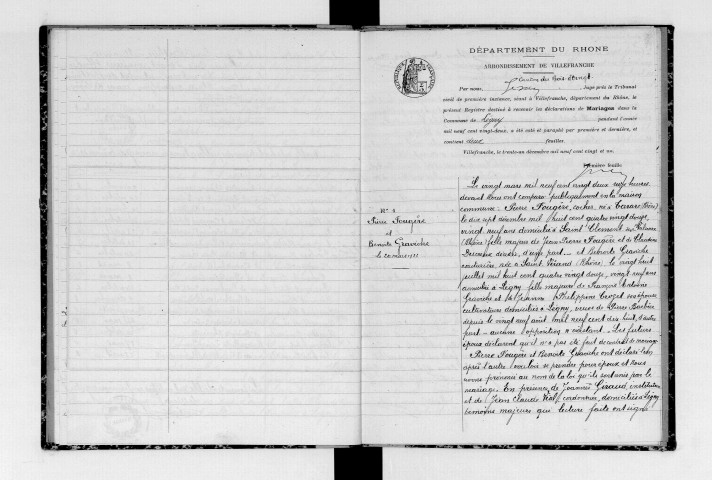 DÉPARTEMENT DU RHÔNE
ARRONDISSEMENT DE VILLEFRANCHE
Canton du Bois d'Oingt
Par nous, Juge près le Tribunal
civil de première instance, séant à Villefranche, département du Rhône, le
présent Registre destiné à recevoir les déclarations de Mariages dans la
Commune de Légny pendant l'année
mil neuf cent vingt-deux, a été coté et paraphé par première et dernière, et
contient deux feuilles
Villefranche, le trente-un décembre mil neuf cent vingt et un.
Première feuille
N° 1
Pierre Fougère
et
Benoite Graviche
le 20 mars 1922
Le vingt mars mil neuf cent vingt deux onze heures
devant Nous ont comparu publiquement en la maison
commune - Pierre Fougère, cocher, né à Tarare (Rhône)
le dix sept décembre mil huit cent quatre vingt douze,
vingt neuf ans domicilié à Saint Clément sur Valsonne
(Rhône) fils majeur de Jean Pierre Fougère et de Claudine
décédés, d'une part - et Benoite Graviche
née à Saint Vérand (Rhône), le vingt huit
juillet mil huit cent quatre vingt douze, vingt neuf ans
domiciliée à Légny fille majeure de François Antoine
Graviche et de Philippine son épouse
cultivateurs domiciliés à Légny, veuve de Pierre
depuis le vingt neuf août mil neuf cent dix huit, d'autre
part - aucune opposition n'existant - Les futurs
époux déclarent qu'il n'a pas été fait de contrat de mariage
Pierre Fougère et Benoite Graviche ont déclaré l'un
après l'autre vouloir se prendre pour époux et Nous
avons prononcé au nom de la loi qu'ils sont unis par le
mariage. En présence de Joannès Giraud, instituteur
et de Jean Claude Vial, cordonnier, domiciliés à Légny
témoins majeurs qui lecture faite ont signé